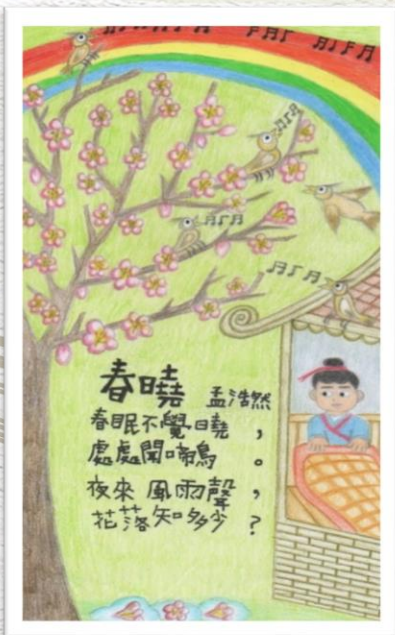 春曉 孟浩然
春眠不覺曉，
處處聞啼鳥。
夜來風雨聲，
花落知多少？